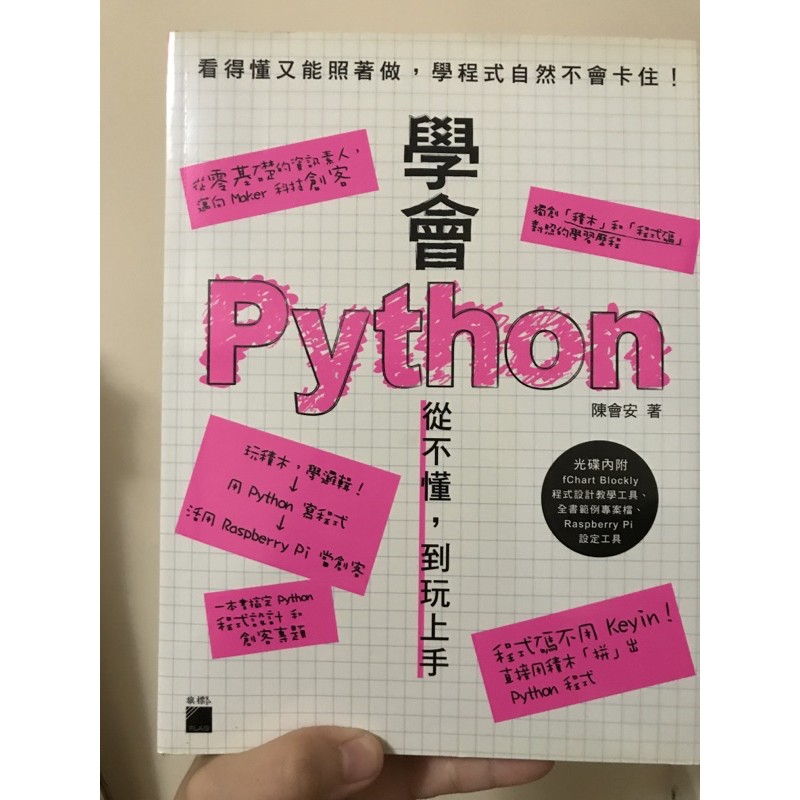 看得懂又能照著做，學程式自然不會卡住！
學會
Python
從不懂，到玩上手
陳會安 著
從零基礎的資訊素人，
邁向 Maker 科技創客
獨創「積木」和「程式碼」
對照的學習歷程
玩積木，學邏輯！
↓
用 Python 寫程式
↓
活用 Raspberry Pi 當創客
光碟內附
fChart Blockly
程式設計教學工具、
全書範例專案檔、
Raspberry Pi
設定工具
一本書搞定 Python
程式設計和
創客專題
程式碼不用 Keyin！
直接用積木「拼」出
Python 程式
旗標
FLAG